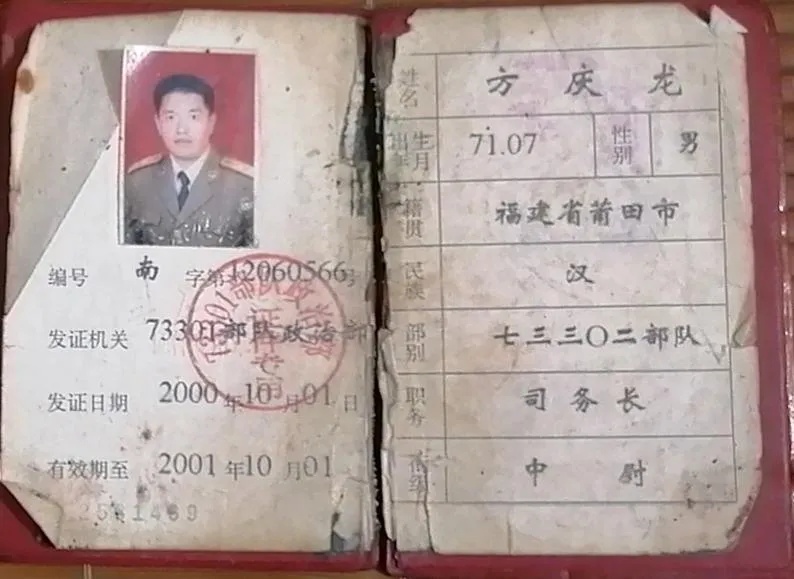 编号 南 字第12060566号
发证机关 73301部队政治部
发证日期 2000年10月01日
有效期至 2001年10月01
2581469
证件专用
姓名 方庆龙
出生年月 71.07 性别 男
籍贯 福建省莆田市
民族 汉
部别 七三三〇二部队
职务 司务长
衔级 中尉